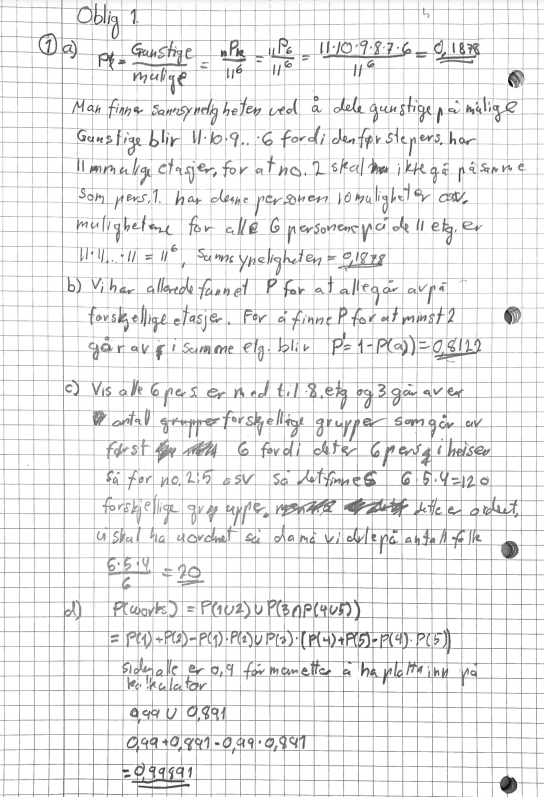 Oblig 1.
① a) P = Gunstige / mulige = nPk / 11^6 = 11P6 / 11^6 = 11·10·9·8·7·6 / 11^6 = 0,1878
Man finner sannsyneligheten ved å dele gunstige på mulige
Gunstige blir 11·10·9...·6 fordi den første pers. har
11 mulige etasjer, for at no. 2 skal ikke gå på samme
som pers. 1. har denne personen 10 muligheter osv.
mulighetene for alle 6 personene på de 11 etg. er
11·11...·11 = 11^6, Sannsyneligheten = 0,1878
b) Vi har allerede funnet P for at alle går av på
forskjellige etasjer. For å finne P for at minst 2
går av i samme etg. blir P = 1-P(a)) = 0,8122
c) Vis alle 6 pers. er med til 8. etg og 3 går av er
antall forskjellige grupper som går av
først 6 fordi det er 6 pers i heisen
så for no. 2: 5 osv så det finnes 6·5·4=120
forskjellige grupper, dette er ordnet,
vi skal ha uordnet så da må vi dele på antall folk
6·5·4 / 6 = 20
d) P(works) = P(1∪2) ∪ P(3∩P(4∪5))
= P(1)+P(2)-P(1)·P(2)∪P(3)·(P(4)+P(5)-P(4)·P(5))
siden alle er 0,9 får man etter å ha plotta inn på
kalkulator
0,99 ∪ 0,891
0,99+0,891-0,99·0,891
= 0,99891